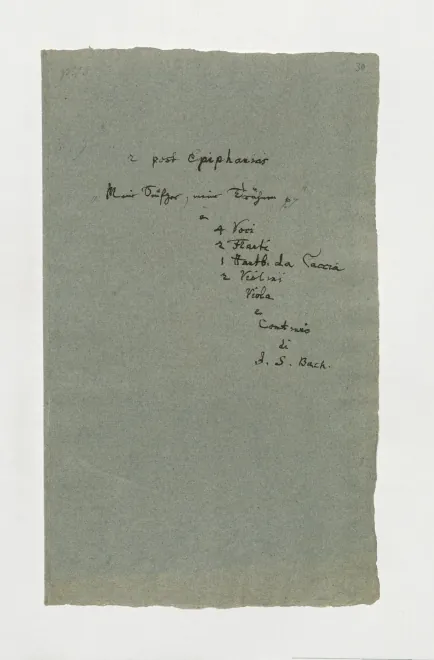 30
2 post Epiphanias
Meine Seüfzer, meine Thränen p
à
4 Voci
2 Flauti
1 Hautb. da Caccia
2 Violini
Viola
e
Continuo
di
J. S. Bach.